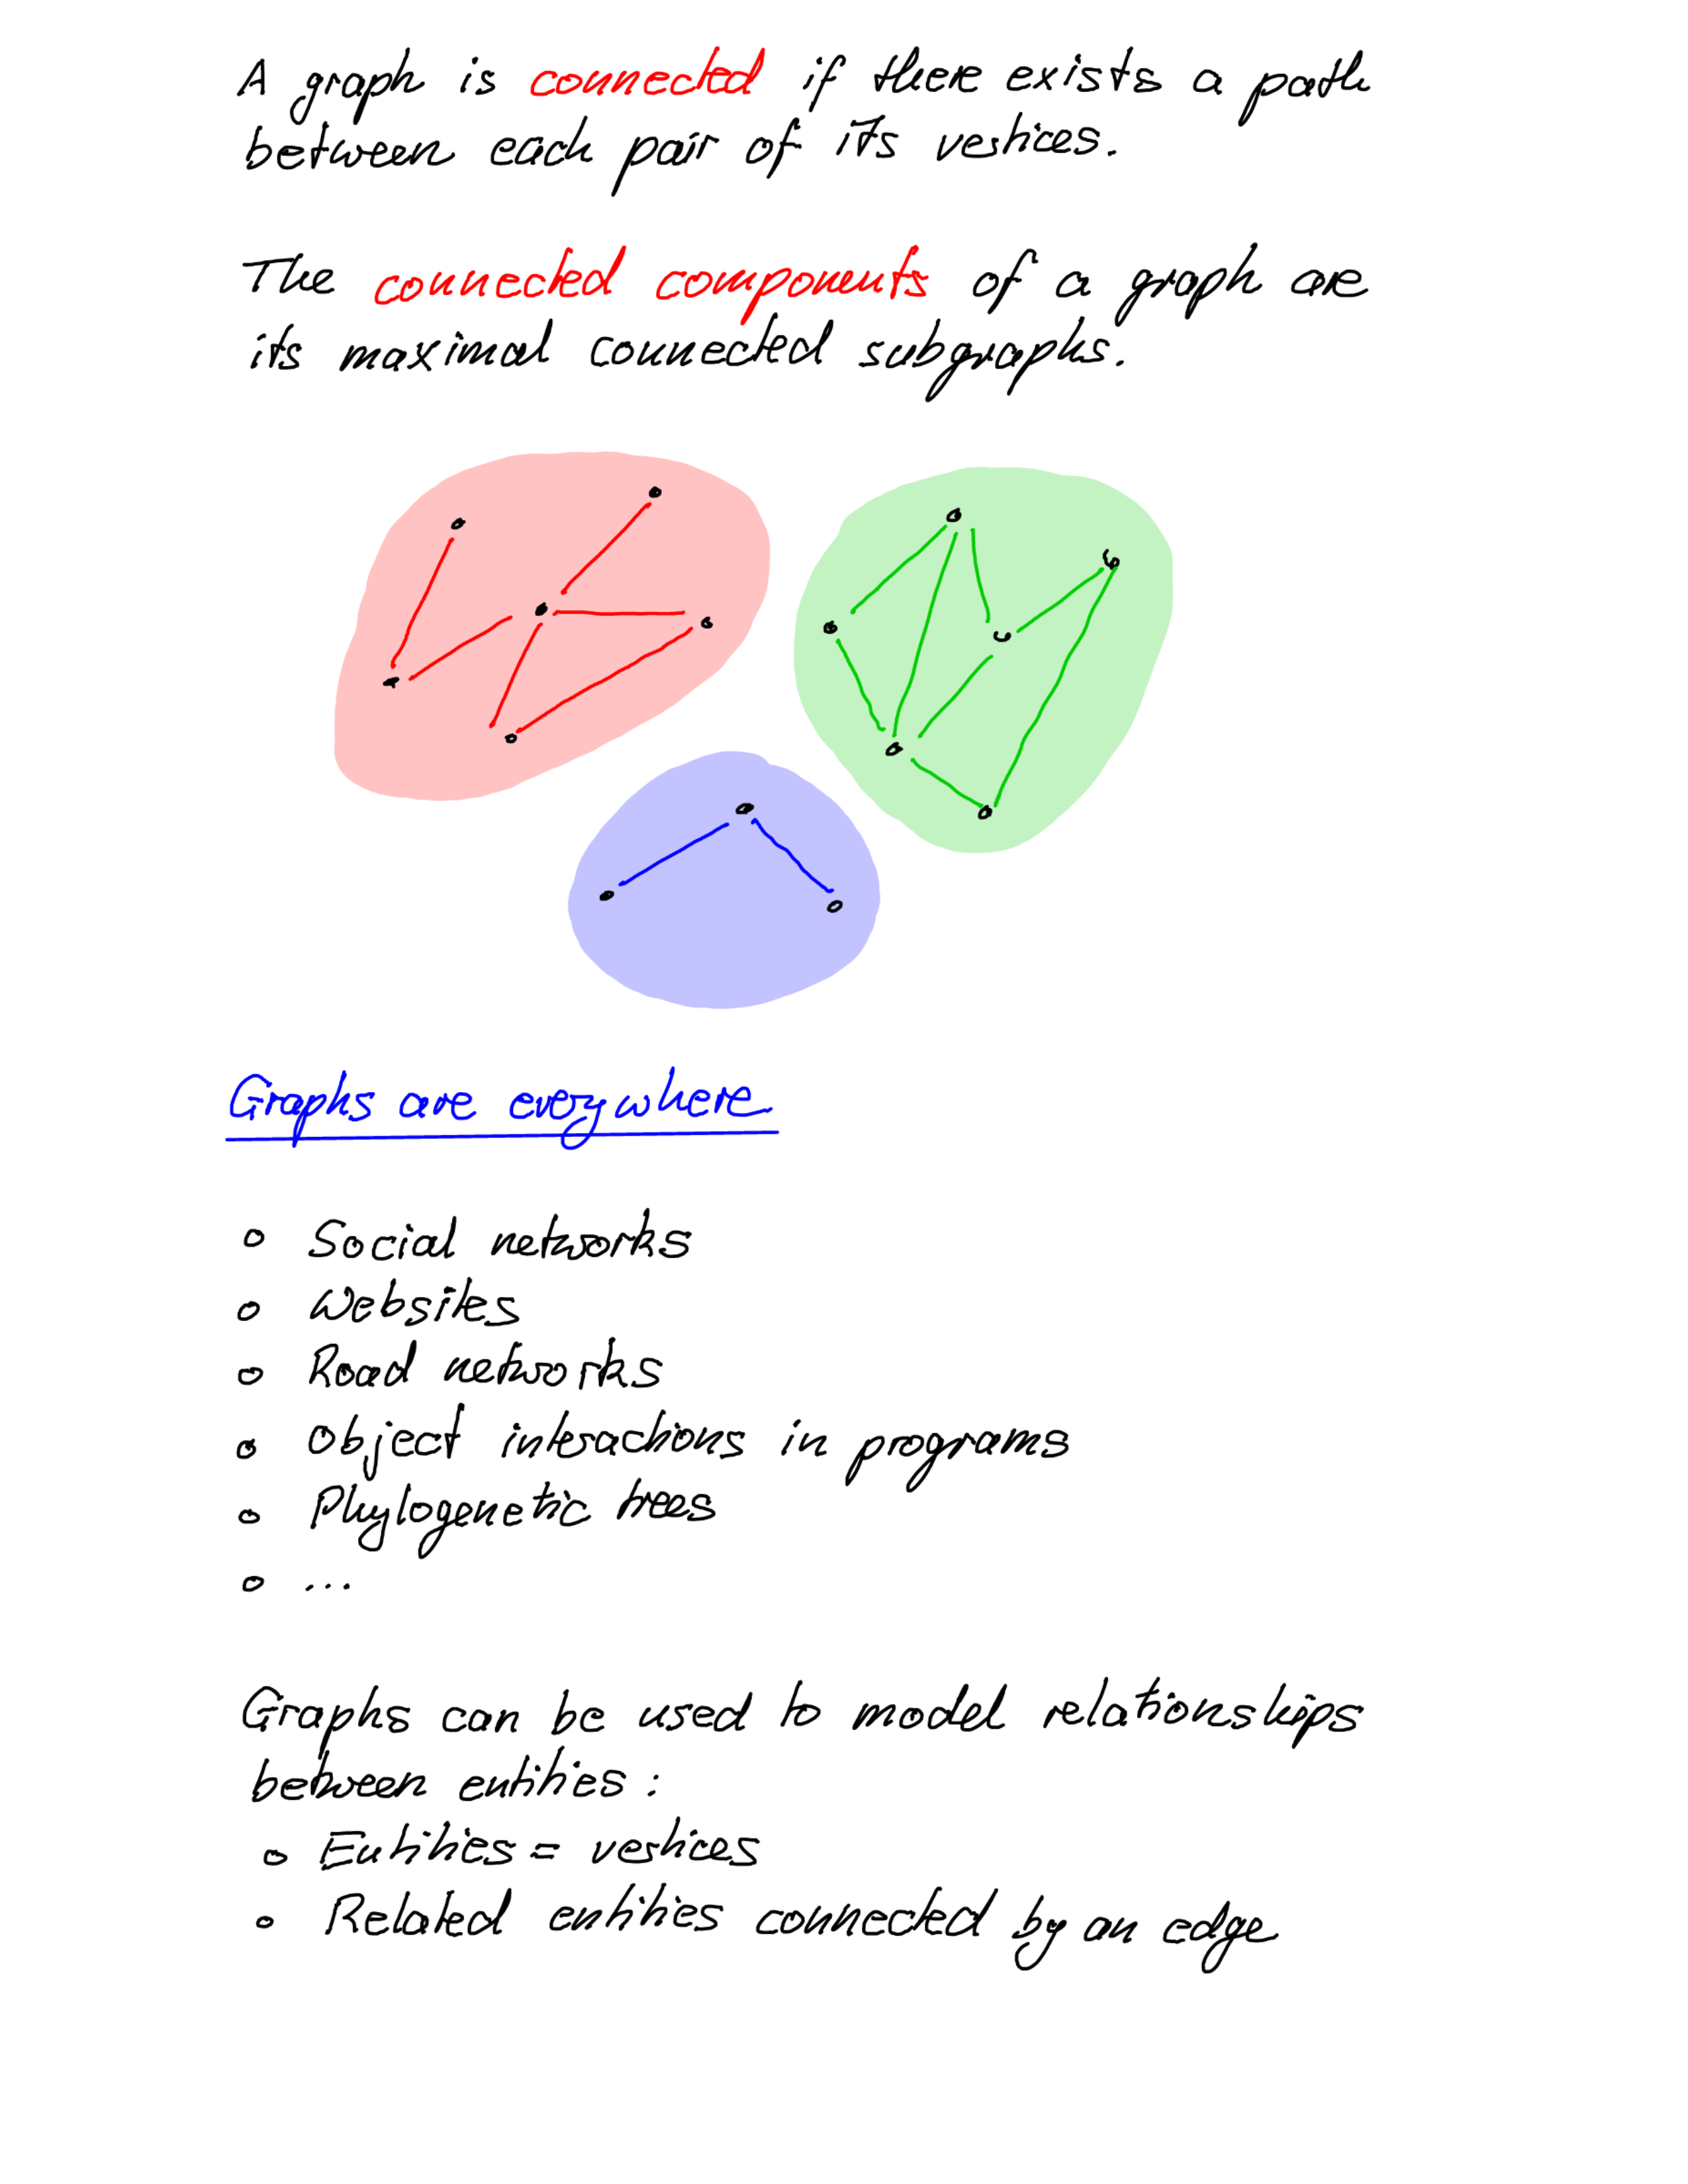 A graph is connected if there exists a path
between each pair of its vertices.
The connected components of a graph are
its maximal connected subgraphs.
Graphs are everywhere
o Social networks
o Websites
o Road networks
o Object interactions in programs
o Phylogenetic trees
o ...
Graphs can be used to model relationships
between entities:
o Entities = vertices
o Related entities connected by an edge